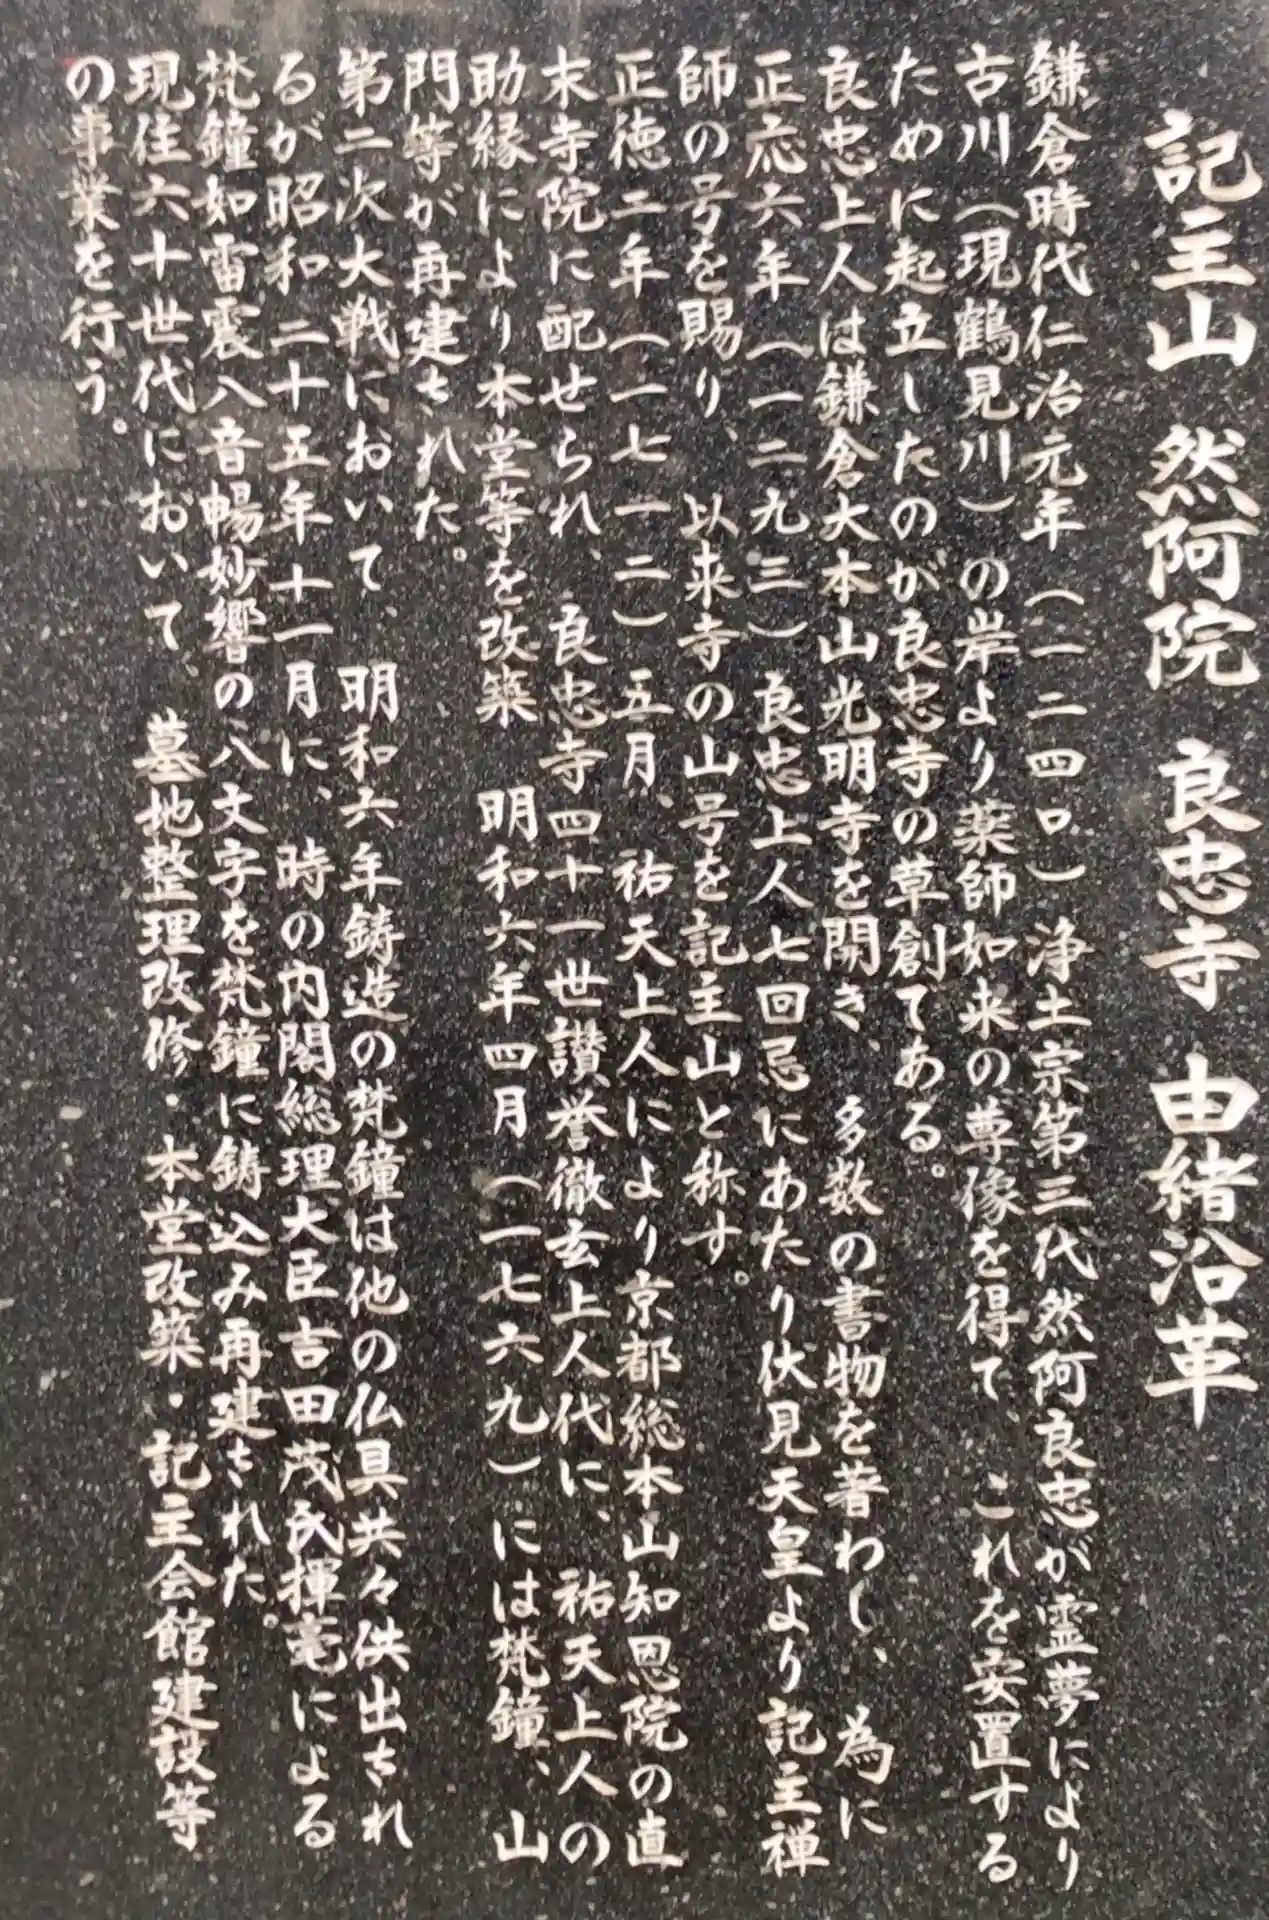 記主山　然阿院　良忠寺　由緒沿革
鎌倉時代仁治元年（一二四〇）浄土宗第三代然阿良忠が霊夢により
古川（現鶴見川）の岸より薬師如来の尊像を得て、これを安置する
ために起立したのが良忠寺の草創てある。
良忠上人は鎌倉大本山光明寺を開き、多数の書物を著わし、為に
正応六年（一二九三）良忠上人七回忌にあたり伏見天皇より記主禅
師の号を賜り、以来寺の山号を記主山と称す。
正徳二年（一七一二）五月、祐天上人により京都総本山知恩院の直
末寺院に配せられ、良忠寺四十一世讃誉徹玄上人代に、祐天上人の
助縁により本堂等を改築　明和六年四月（一七六九）には梵鐘、山
門等が再建された。
第二次大戦において、明和六年鋳造の梵鐘は他の仏具共々供出され
るが昭和二十五年十一月に、時の内閣総理大臣吉田茂氏揮毫による
梵鐘如雷震八音暢妙響の八文字を梵鐘に鋳込み再建された。
現住六十世代において、墓地整理改修・本堂改築・記主会館建設等
の事業を行う。